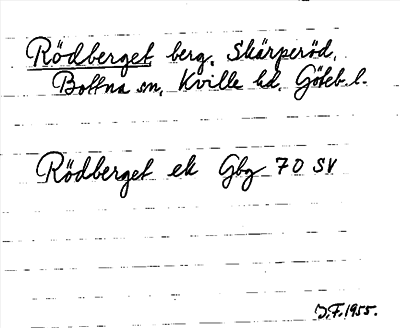 Rödberget berg, Skärperöd,
Bottna sn, Kville hd, Göteb. l.
Rödberget ek Gbg 70 SV
J.F. 1955.